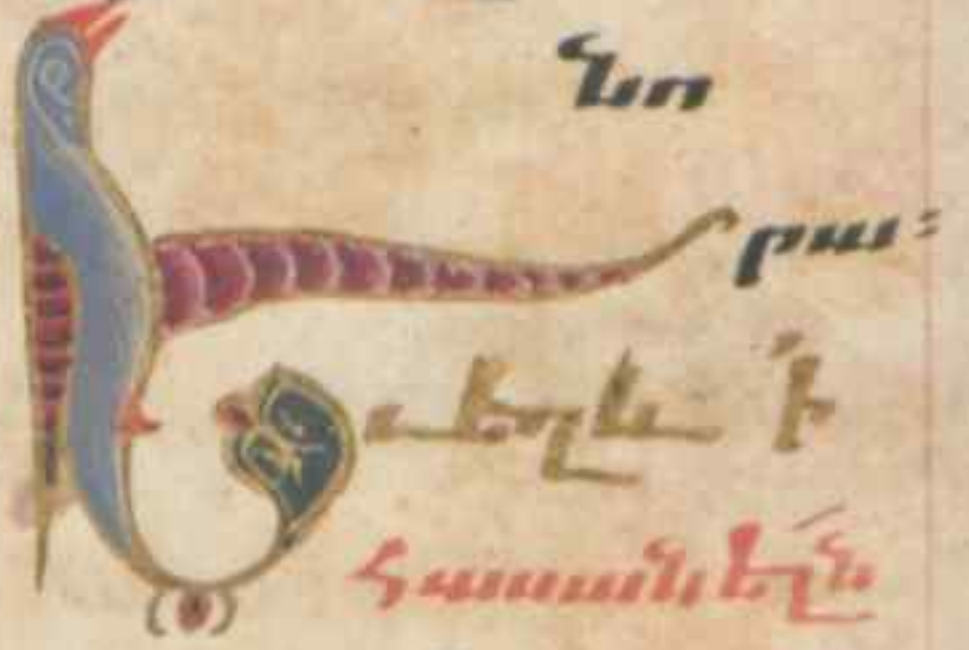 նո
րա։
Եւ եղև ի
հասանելն